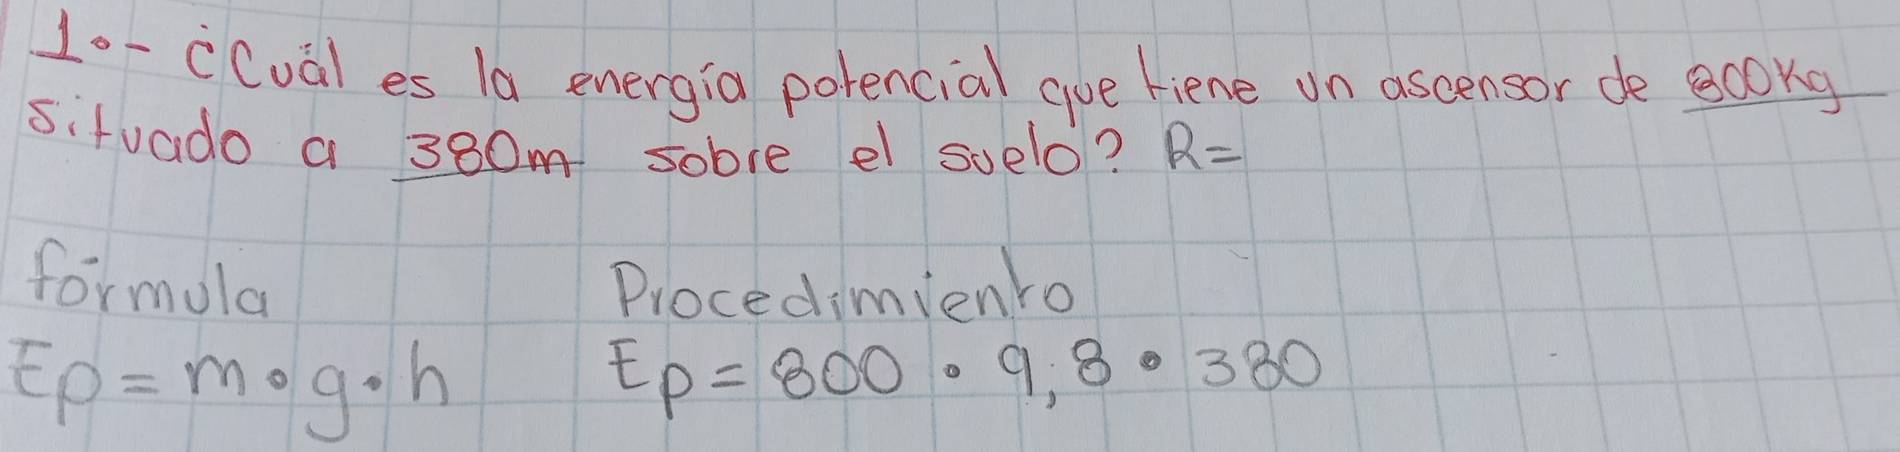 1.- ¿Cuál es la energía potencial que tiene un ascensor de 800Kg
situado a 380m sobre el suelo? R=
fórmula Procedimiento
Ep = m • g • h Ep = 800 • 9,8 • 380